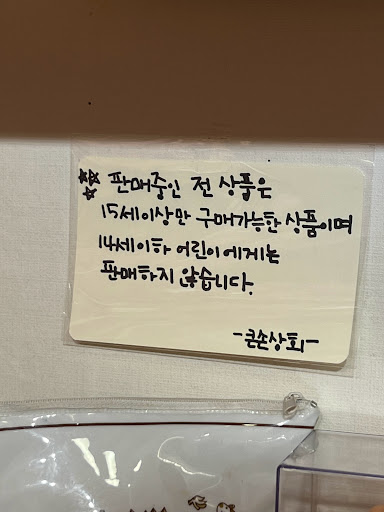 ☆☆☆ 판매중인 전 상품은
15세이상만 구매가능한 상품이며
14세이하 어린이에게는
판매하지 않습니다.
-큰손상회-